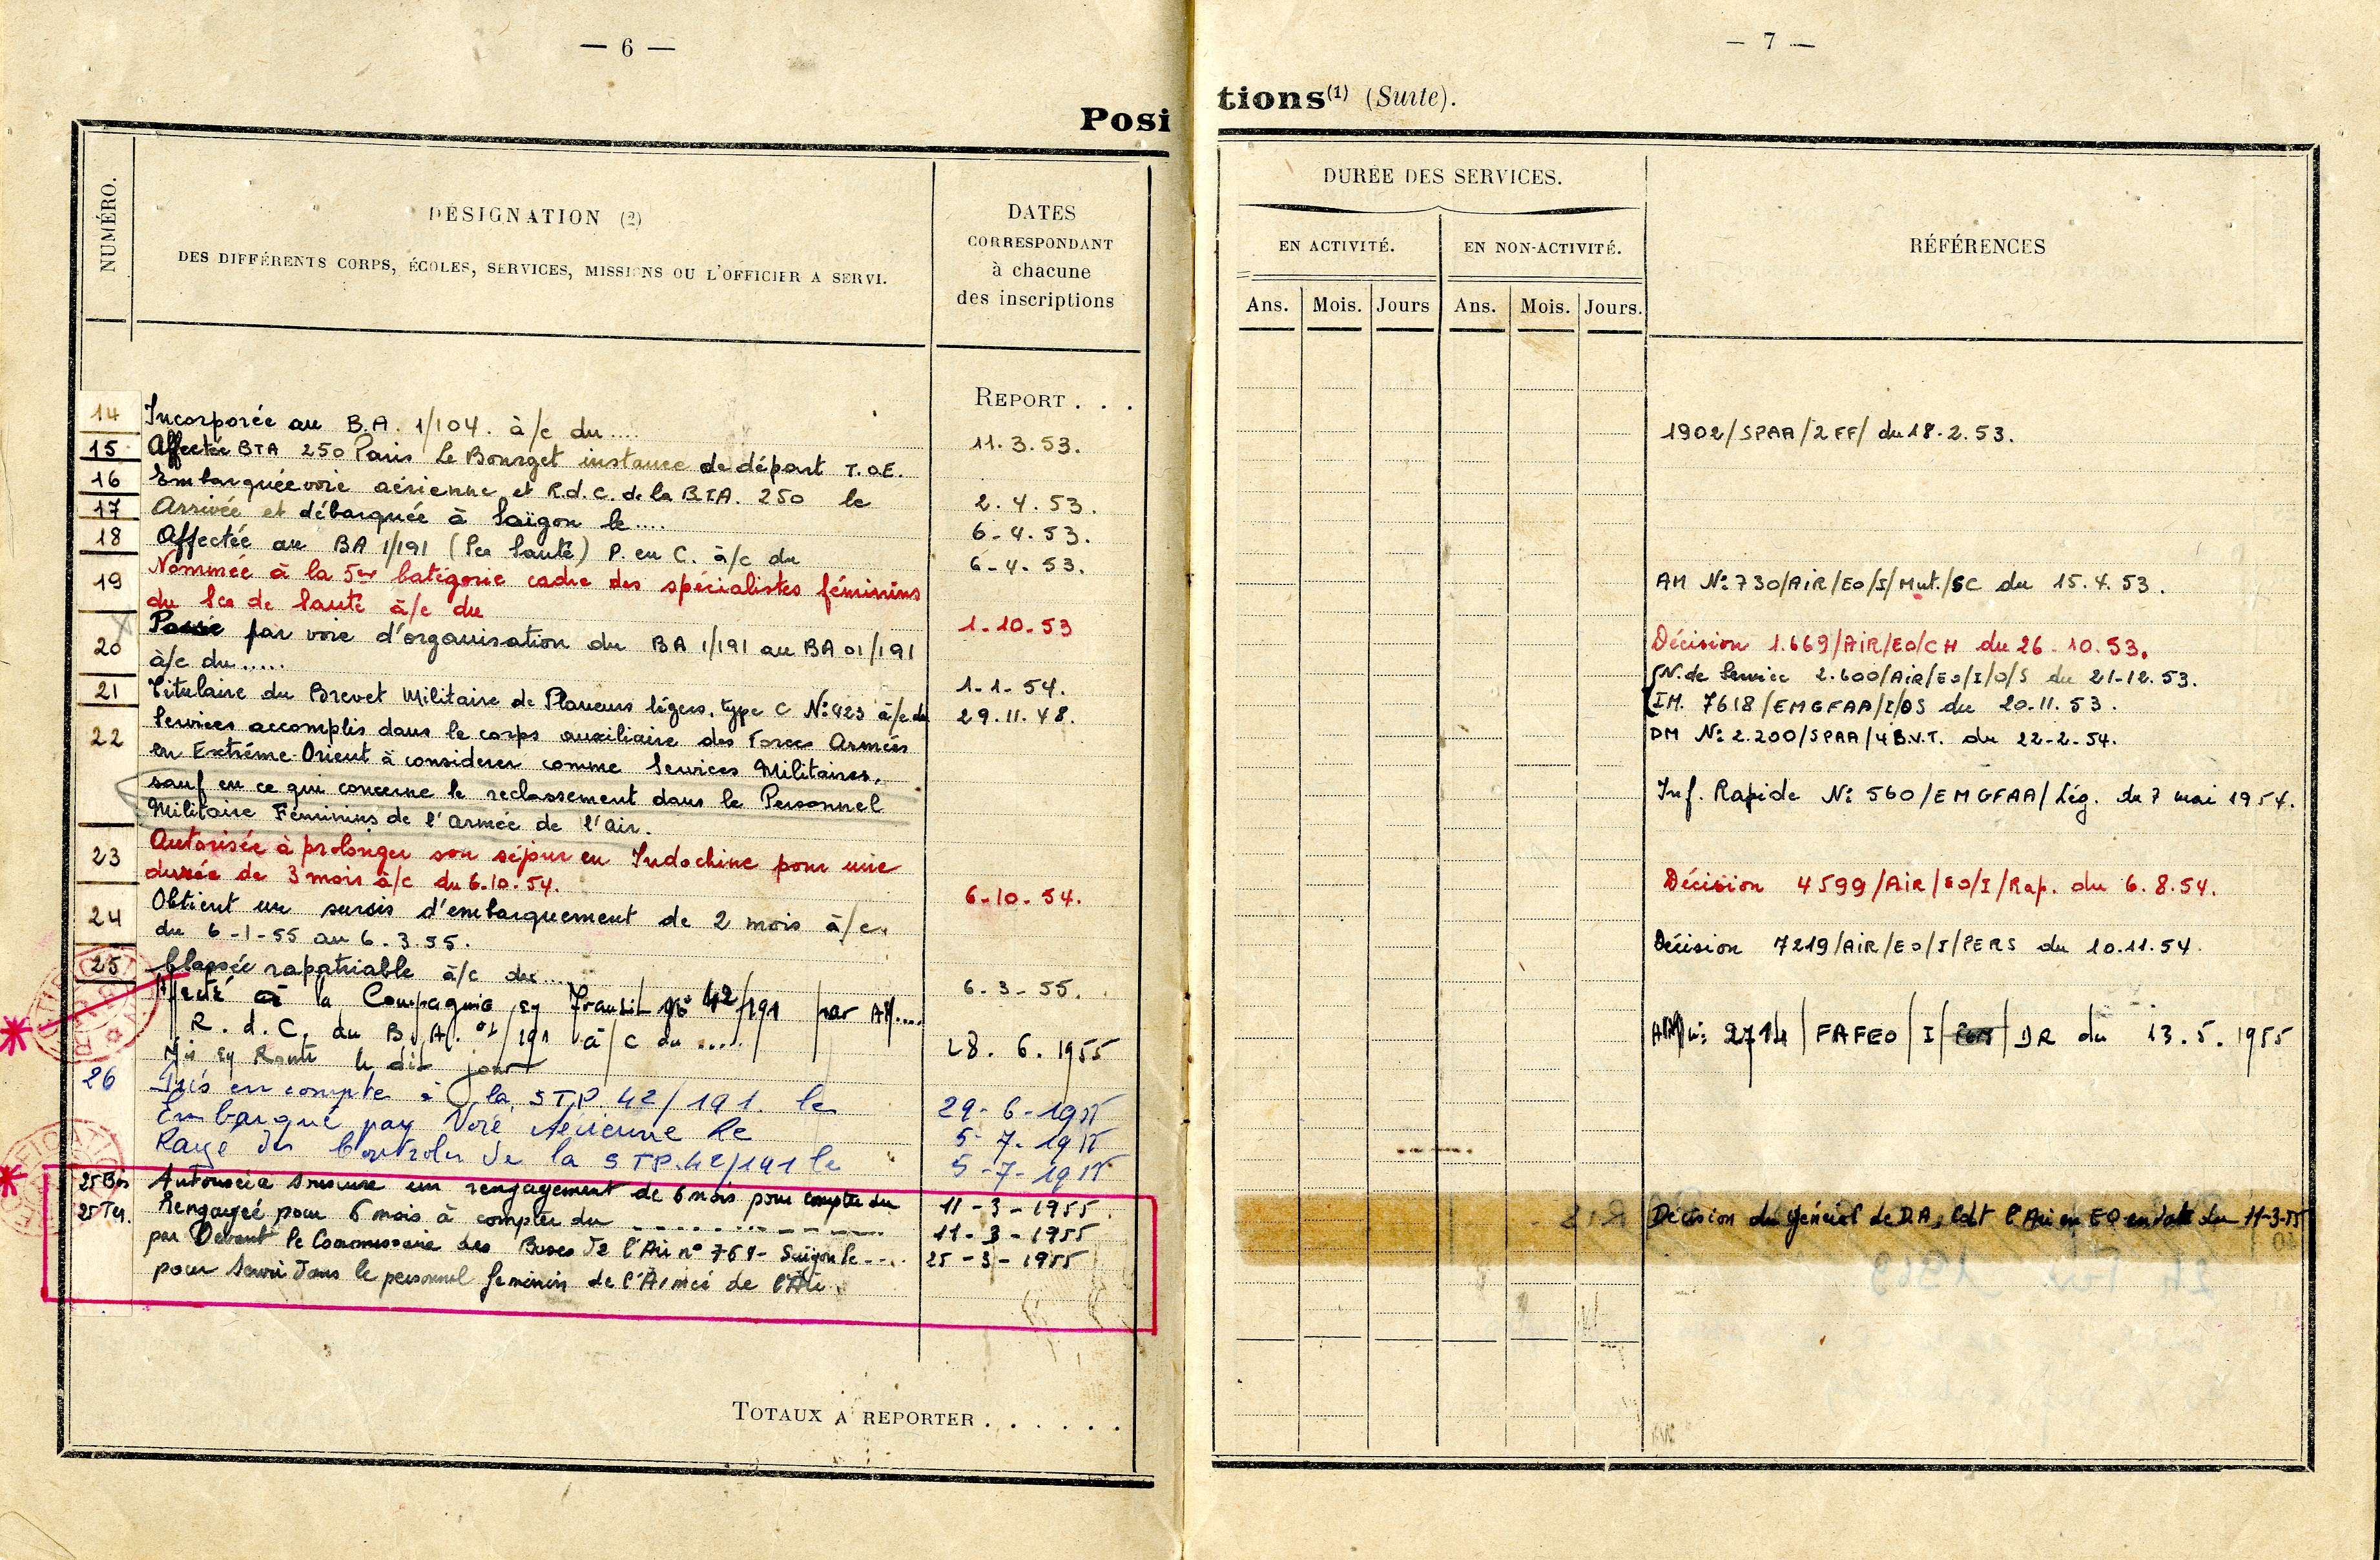 — 6 —
Posi
NUMÉRO.
DÉSIGNATION (2)
DES DIFFÉRENTS CORPS, ÉCOLES, SERVICES, MISSIONS OU L'OFFICIER A SERVI.
DATES
CORRESPONDANT
à chacune
des inscriptions
REPORT . . .
14 Incorporée au B.A. 1/104. à/c du.... 11.3.53.
15 Affectée BTA 250 Paris Le Bourget instance de départ T.O.E.
16 Embarquée voie aérienne et R.d.C. de la BTA. 250 le 2.4.53.
17 Arrivée et débarquée à Saïgon le.... 6-4.53.
18 Affectée au BA 1/191 (Sce Santé) P. en C. à/c du 6-4-53.
19 Nommée à la 5e Catégorie cadre des spécialistes féminins
du Sce de Santé à/c du 1-10-53
20 Passe par voie d'organisation du BA 1/191 au BA 01/191
à/c du..... 1-1-54.
21 Titulaire du Brevet Militaire de Planeurs légers. type C No 423 à/c du 29.11.48.
22 Services accomplis dans le corps auxiliaire des Forces Armées
en Extrême-Orient à considerer comme Services Militaires.
sauf en ce qui concerne le reclassement dans le Personnel
Militaire Féminins de l'armée de l'air.
23 Autorisée à prolonger son séjour en Indochine pour une
durée de 3 mois à/c du 6-10-54. 6-10-54.
24 Obtient un sursis d'embarquement de 2 mois à/c
du 6-1-55 au 6.3.55.
25 Classée rapatriable à/c du... 6-3-55.
Affecté à la Compagnie de Transit No 42/191 par AM....
R.d.C. du B.A. 01/191 à/c du .... 28.6.1955
Mis en Route le dit jour
26 Pris en compte à la STP. 42/191. le 29-6-1955
Embarqué par Voie Aérienne le 5-7-1955
Rayé des Controles de la STP.42/191 le 5-7-1955
25 Bis Autorisée à souscrire un rengagement de 6 mois pour compter du 11-3-1955.
25 Ter. Rengagée pour 6 mois à compter du 11-3-1955
par Devant le Commissaire des Bases de l'Air no 768- Saïgon le .... 25-3-1955
pour servir dans le personnel feminin de l'Armée de l'Air.
TOTAUX A REPORTER . . . . . .
— 7 —
tions(1) (Suite).
DURÉE DES SERVICES.
EN ACTIVITÉ. EN NON-ACTIVITÉ.
Ans. Mois. Jours Ans. Mois. Jours.
RÉFÉRENCES
1902/SPAA/2FF/ du 18-2.53.
AM No 730/AiR/EO/I/Mut./SC du 15.4.53.
Décision 1.669/AIR/EO/CH du 26-10.53.
N. de Service 2.600/AiR/EO/I/O/S du 21-12.53.
IM. 7618/EMGFAA/I/OS du 20.11.53.
DM No 2.200/SPAA/4B.V.T. du 22-2-54.
Inf. Rapide No 560/EMGFAA/Lég. du 7 mai 1954.
Décision 4599/AiR/EO/I/Rap. du 6.8.54.
Décision 7219/AiR/EO/I/PERS du 10.11.54.
AM No 2714/FAFEO/I/ /DR du 13.5.1955
Décision du Général de D.A. Cdt l'Air en EO en date du 11-3-55